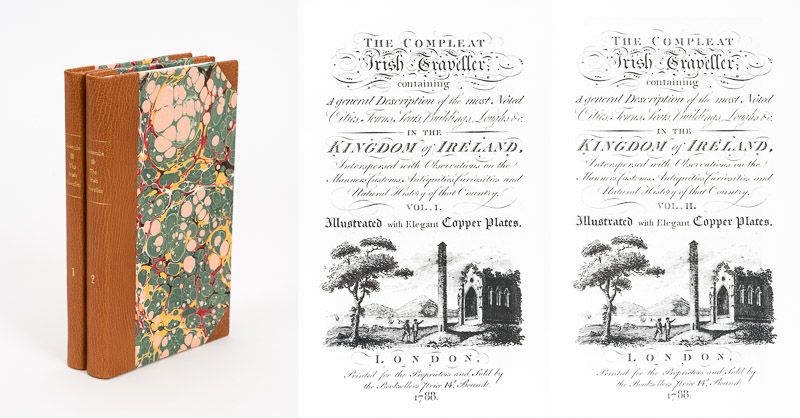 Luckombe
The
Irish
Traveller
1
Luckombe
The
Irish
Traveller
2
THE COMPLEAT
Irish Traveller,
containing
A general Description of the most Noted
Cities, Towns, Seats, Buildings, Loughs &c.
IN THE
KINGDOM of IRELAND,
Interspersed with Observations on the
Manners, Customs, Antiquities, Curiosities and
Natural History of that Country.
VOL. I.
Illustrated with Elegant Copper Plates.
LONDON,
Printed for the Proprietors and Sold by
the Booksellers Price 14s. Bound:
1788.
THE COMPLEAT
Irish Traveller,
containing
A general Description of the most Noted
Cities, Towns, Seats, Buildings, Loughs &c.
IN THE
KINGDOM of IRELAND,
Interspersed with Observations on the
Manners, Customs, Antiquities, Curiosities and
Natural History of that Country.
VOL. II.
Illustrated with Elegant Copper Plates.
LONDON,
Printed for the Proprietors and Sold by
the Booksellers Price 14s. Bound:
1788.